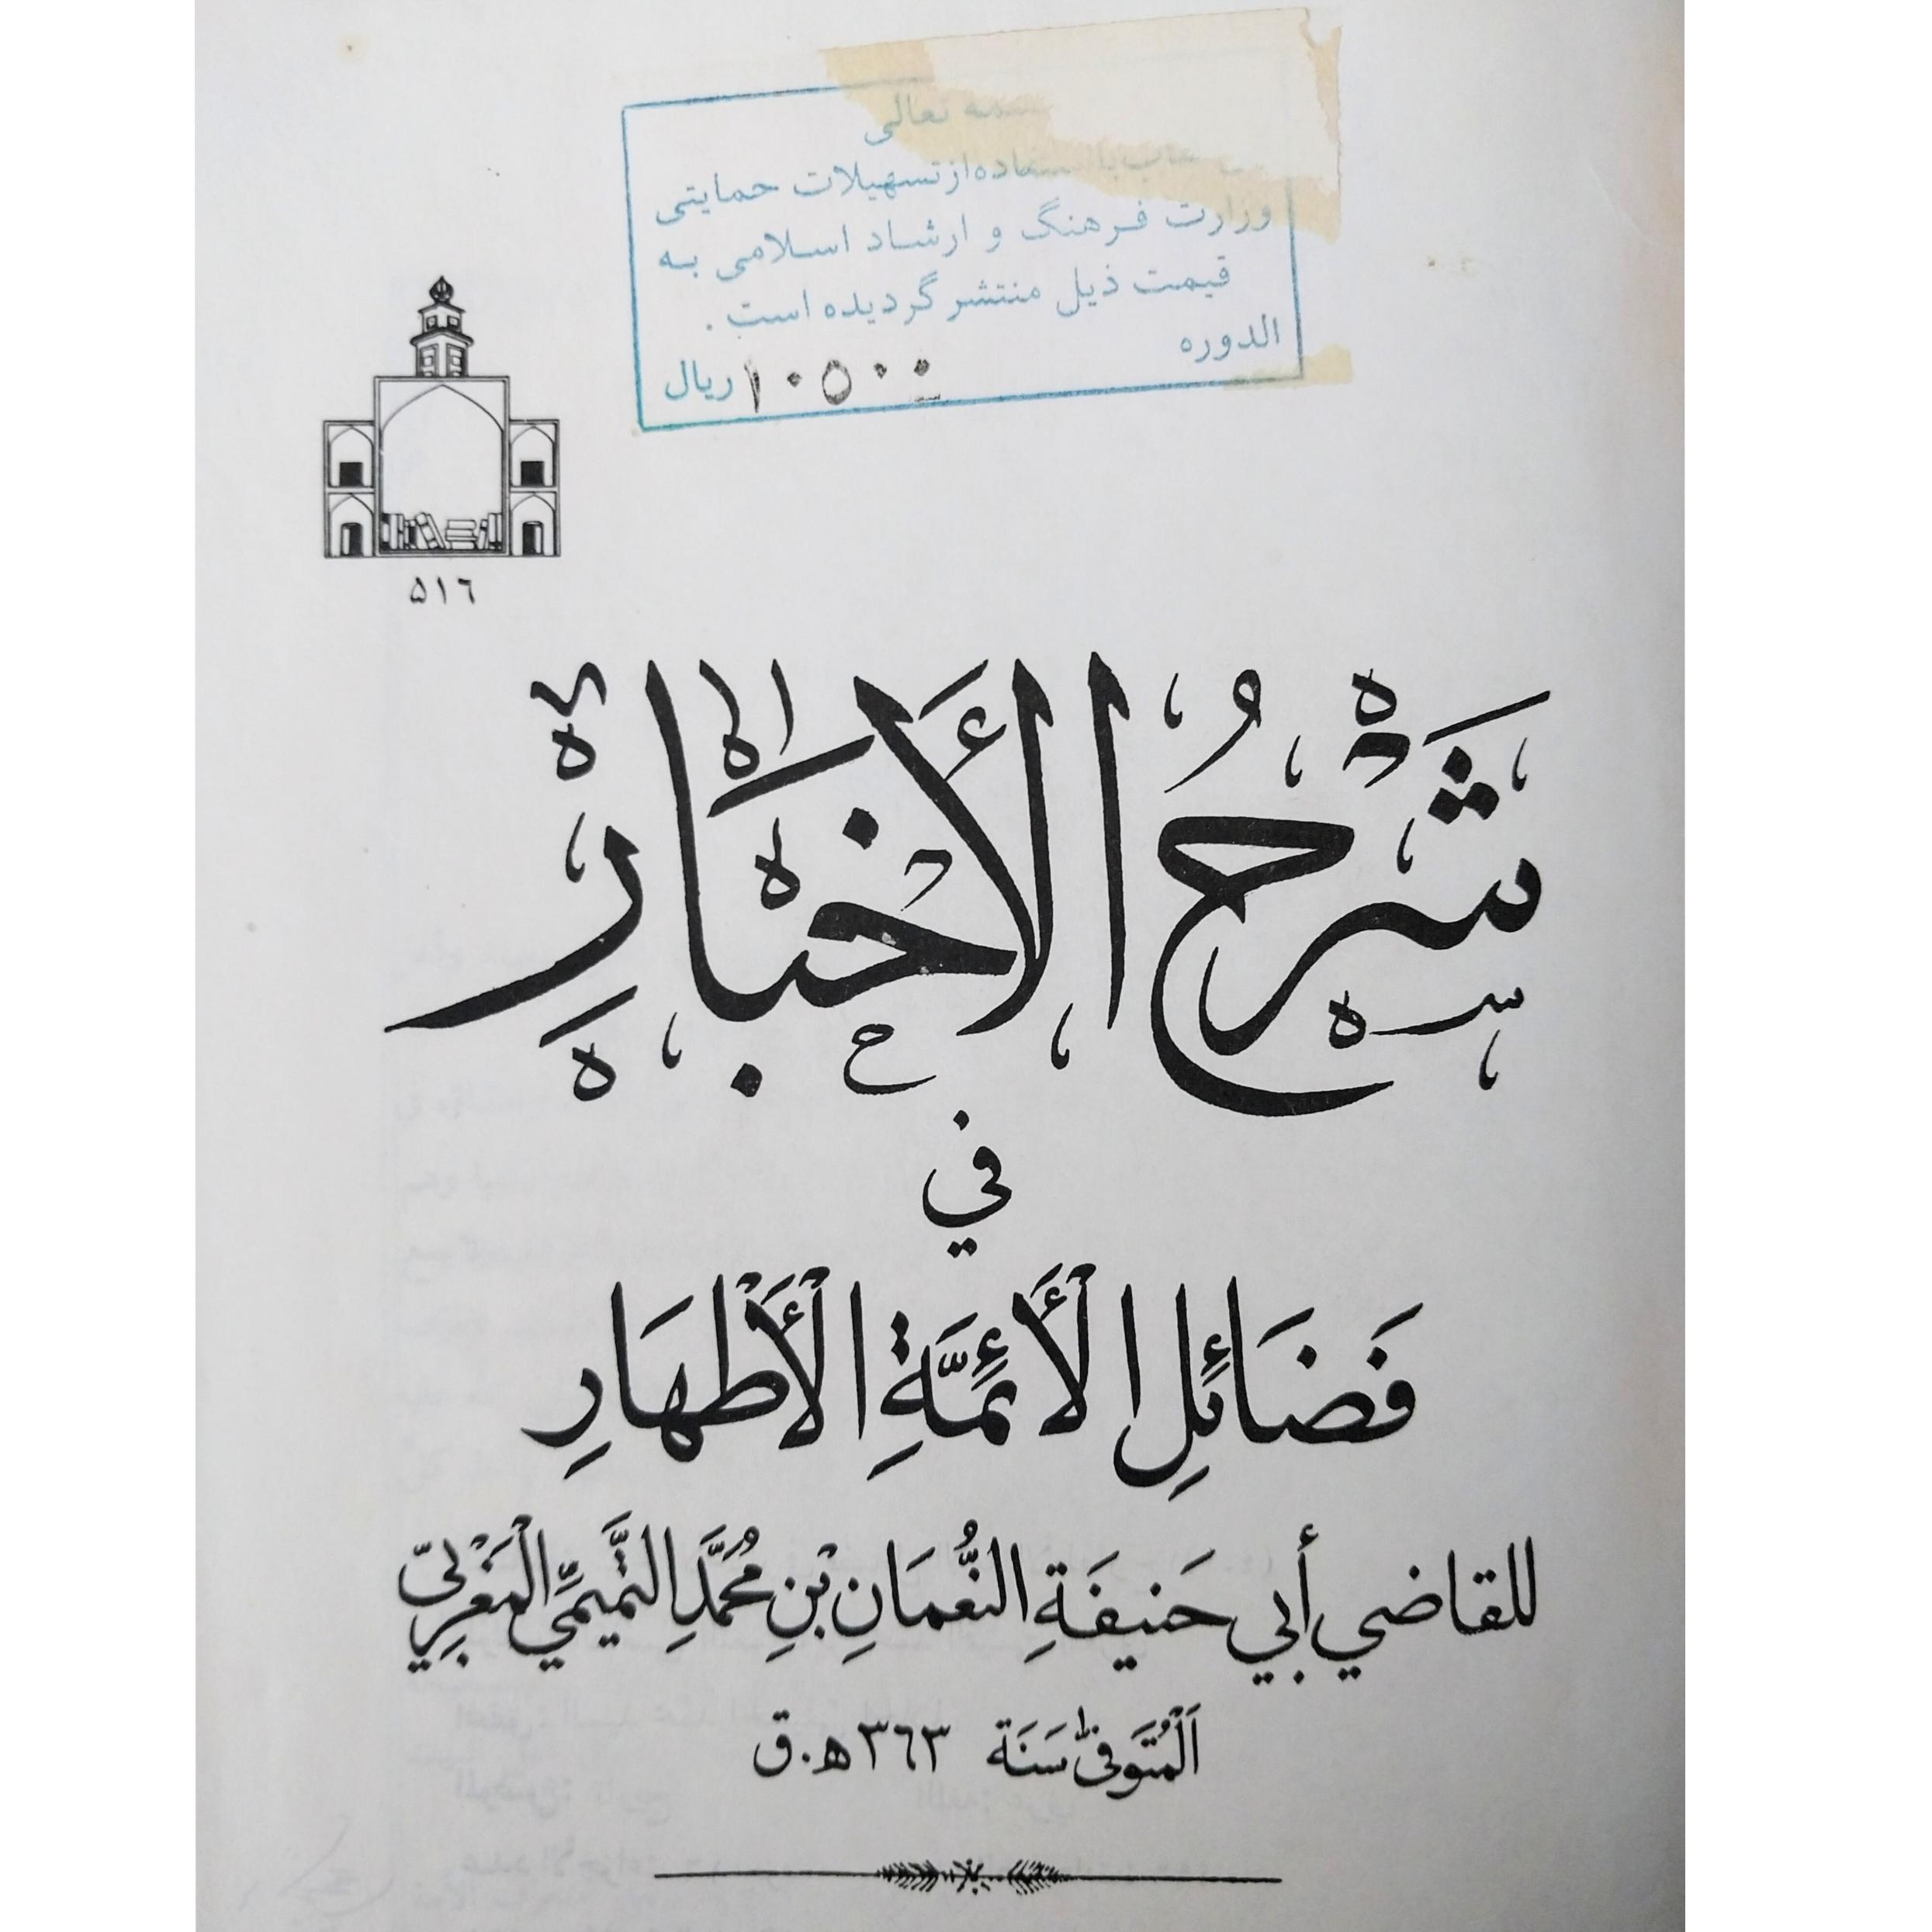 تعالی
از تسهیلات حمایتی
وزارت فرهنگ و ارشاد اسلامی به
قیمت ذیل منتشر گردیده است .
الدوره
۱۰۵۰۰ ریال
۵۱٦
شَرْحُ الأَخبَارِ
في
فَضَائِلِ الأَئِمَّةِ الْأَطْهَارِ
للقاضي أبي حَنيفَةِ النُّعمَانِ بْنِ مُحَمَّدِ التَّميمِّي الْمَغْرِبيّ
اَلْمُتَوَفّى سَنَة ٣٦٣ هـ.ق